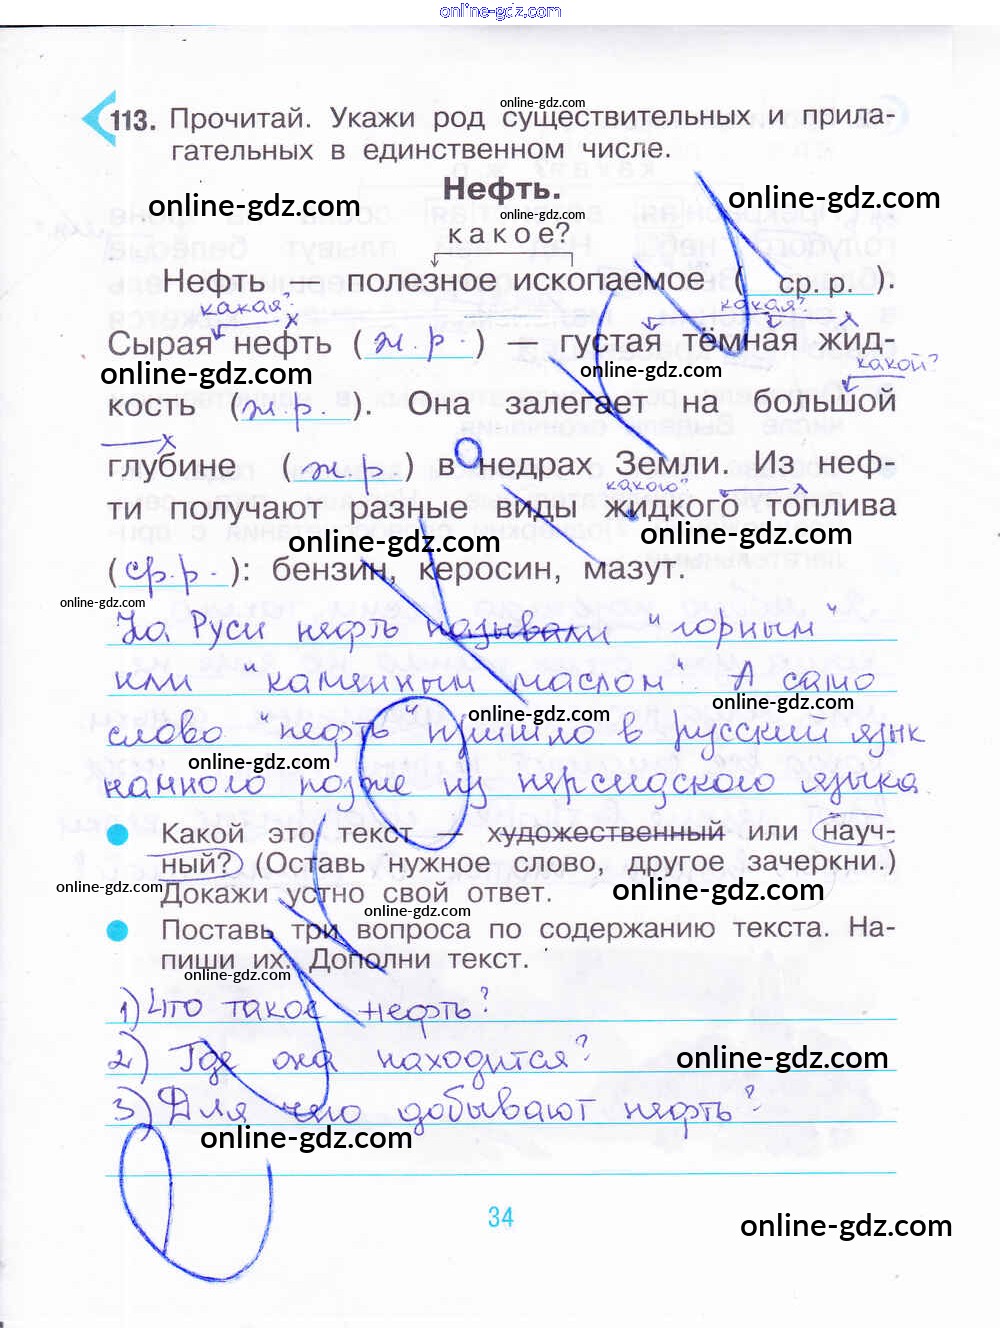 online-gdz.com
online-gdz.com
113. Прочитай. Укажи род существительных и прила-
гательных в единственном числе.
Нефть.
online-gdz.com
online-gdz.com
online-gdz.com
какое?
Нефть — полезное ископаемое (ср.р.).
какая? х какая? х
Сырая нефть (ж.р.) — густая тёмная жид-
online-gdz.com
online-gdz.com
какой?
кость (ж.р.). Она залегает на большой
х
глубине (ж р) в недрах Земли. Из неф-
какого? х
ти получают разные виды жидкого топлива
online-gdz.com
online-gdz.com
(ср.р.): бензин, керосин, мазут.
online-gdz.com
На Руси нефть называли "горным"
или "каменным маслом". А само
online-gdz.com
online-gdz.com
слово "нефть" пришло в русский язык
online-gdz.com
намного позже из персидского языка.
Какой это текст — художественный или науч-
ный? (Оставь нужное слово, другое зачеркни.)
online-gdz.com
online-gdz.com
Докажи устно свой ответ.
online-gdz.com
Поставь три вопроса по содержанию текста. На-
пиши их. Дополни текст.
online-gdz.com
1) Что такое нефть?
2) Где она находится?
online-gdz.com
3) Для чего добывают нефть?
online-gdz.com
34
online-gdz.com